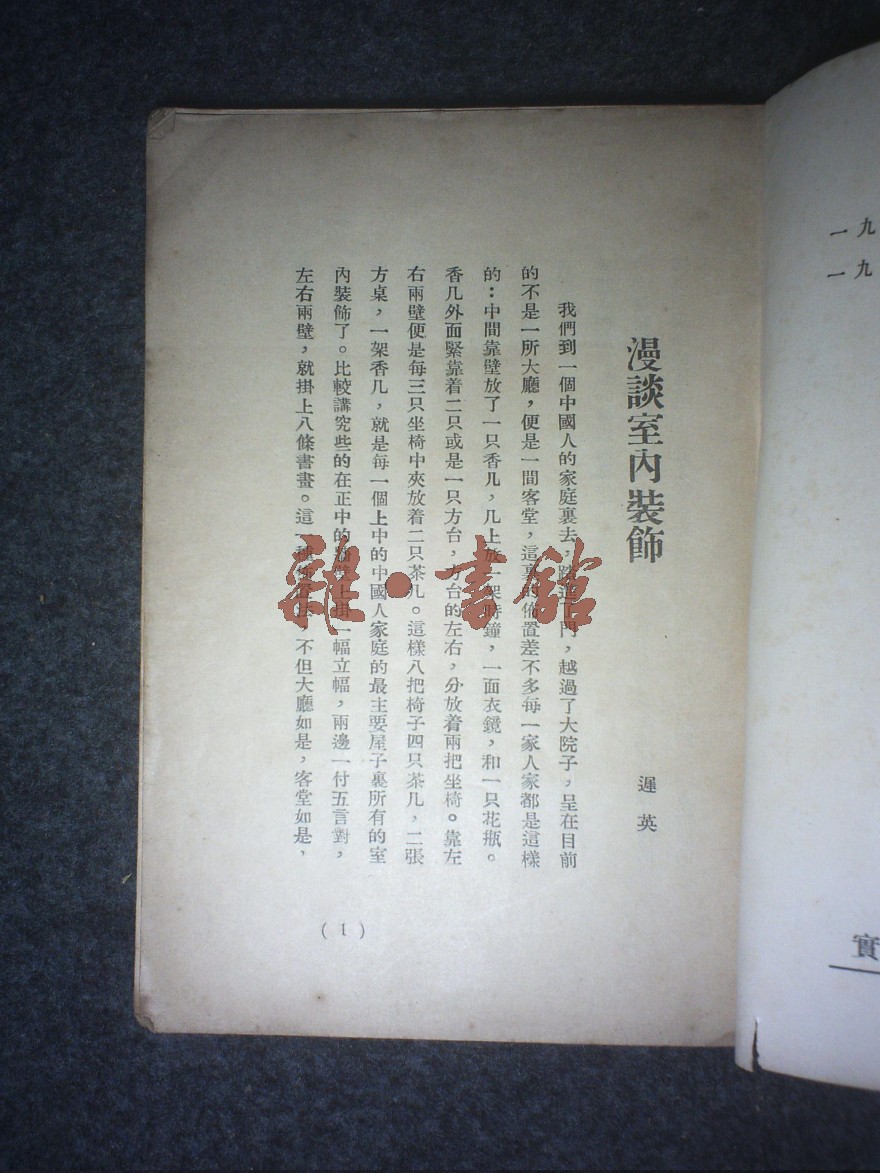 一九
一九
實
漫談室內裝飾
遲英
我們到一個中國人的家庭裏去，踏進了門，越過了大院子，呈在目前
的不是一所大廳，便是一間客堂，這裏的佈置差不多每一家人家都是這樣
的：中間靠壁放了一只香几，几上放一架時鐘，一面衣鏡，和一只花瓶。
香几外面緊靠着二只或是一只方台，方台的左右，分放着兩把坐椅。靠左
右兩壁便是每三只坐椅中夾放着二只茶几。這樣八把椅子四只茶几，二張
方桌，一架香几，就是每一個上中的中國人家庭的最主要屋子裏所有的室
內裝飾了。比較講究些的在正中的上掛一幅立幅，兩邊一付五言對，
左右兩壁，就掛上八條書畫。這一種，不但大廳如是，客堂如是，
(1)
雜·書館